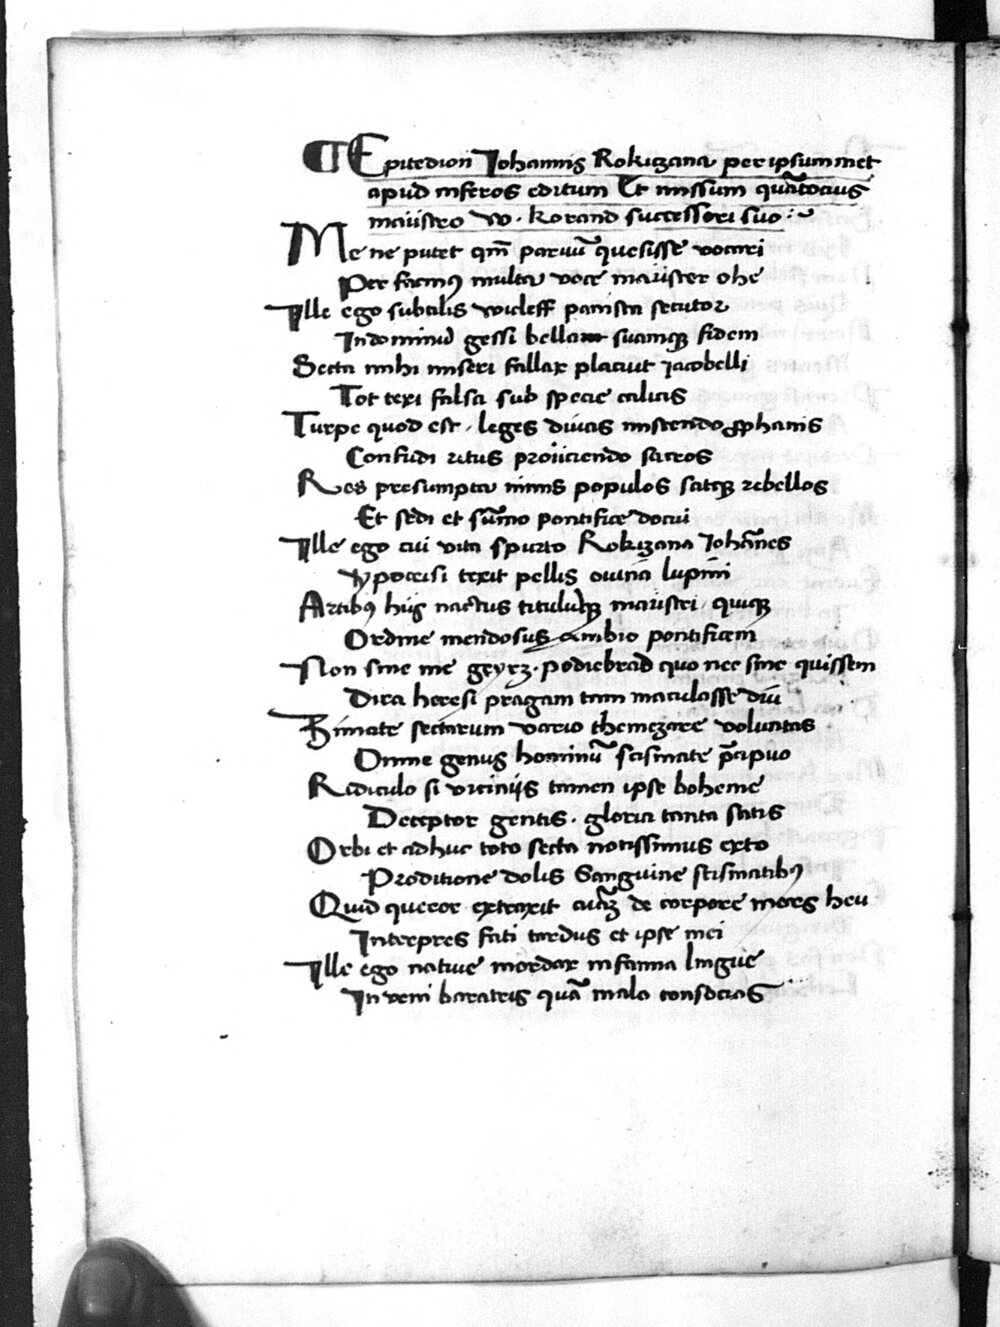 ¶ Epitedion Johannis Rokizana per ipsummet
apud inferos editum Et missum quātocius
maiistro W. Korand successori suo
Me ne putet qm̄ paruū quesisse vocari
Per fórmas multa voce maiister ohe
Ille ego subtilis wicleff pansta secutor
In dominū gessi bella suamqȝ fidem
Secta mihi miseri fallax placuit Jacobelli
Tot texi falsa sub specie calicis
Turpe quod est, leges diuas miscendo ꝓphanis
Confudi ritus proiiciendo sacros
Res presumpta nimis populos satqȝ rebellos
Et sedi et sūmo pontifice docui
Ille ego cui vita spurco Rokizana Johānes
ypocrisi texit pellis ouina lupini
Artibꝰ hiis nactus titulūqȝ maiistri quoqȝ
Ordine mendosus ambio pontificem
Non sine me geyrz. podiebrad quo nec sine quissem
Dira heresi pragam tam maculasse diū
Zimate sectarum vario themerare voluntas
Omne genus hominū scismate p̄cipuo
Ridiculo si viciniis tamen ipse boheme
Deceptor gentis. gloria tanta satis
Orbi et adhuc toto secta notissimus exto
Proditione dolis Sanguine scismatibꝰ
Quid queror extraxit de corpore mors heu
Interpres fati tardus et ipse mei
Ille ego natiue mordax infamia lingue
In veni baratris quā mala consocias